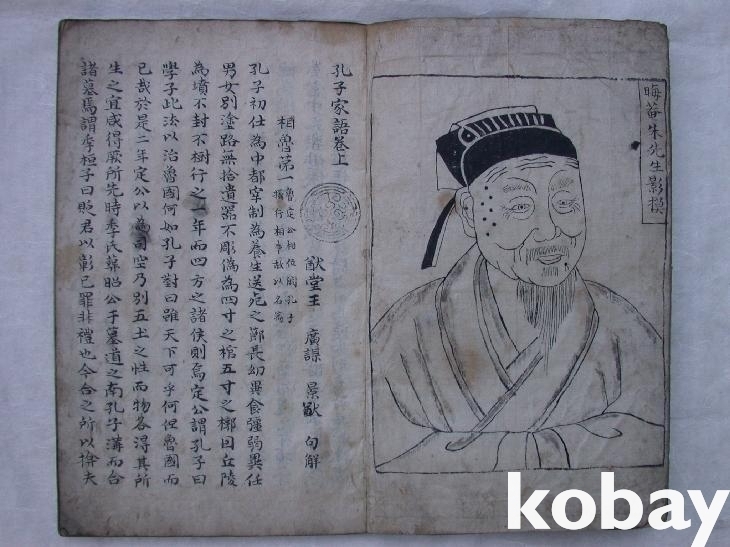 晦菴朱先生影模
孔子家語卷上
相魯第一
魯定公相位閒孔子
攝行相事故以名篇
猷堂王 廣謀 景猷 句解
孔子初仕為中都宰制為養生送死之節長幼異食彊弱異任
男女別塗路無拾遺器不彫偽為四寸之棺五寸之槨因丘陵
為墳不封不樹行之一年而四方之諸侯則焉定公謂孔子曰
學子此法以治魯國何如孔子對曰雖天下可乎何但魯國而
已哉於是二年定公以為司空乃別五土之性而物各得其所
生之宜咸得厥所先時季氏葬昭公于墓道之南孔子溝而合
諸墓焉謂季桓子曰貶君以彰己罪非禮也今合之所以揜夫
kobay